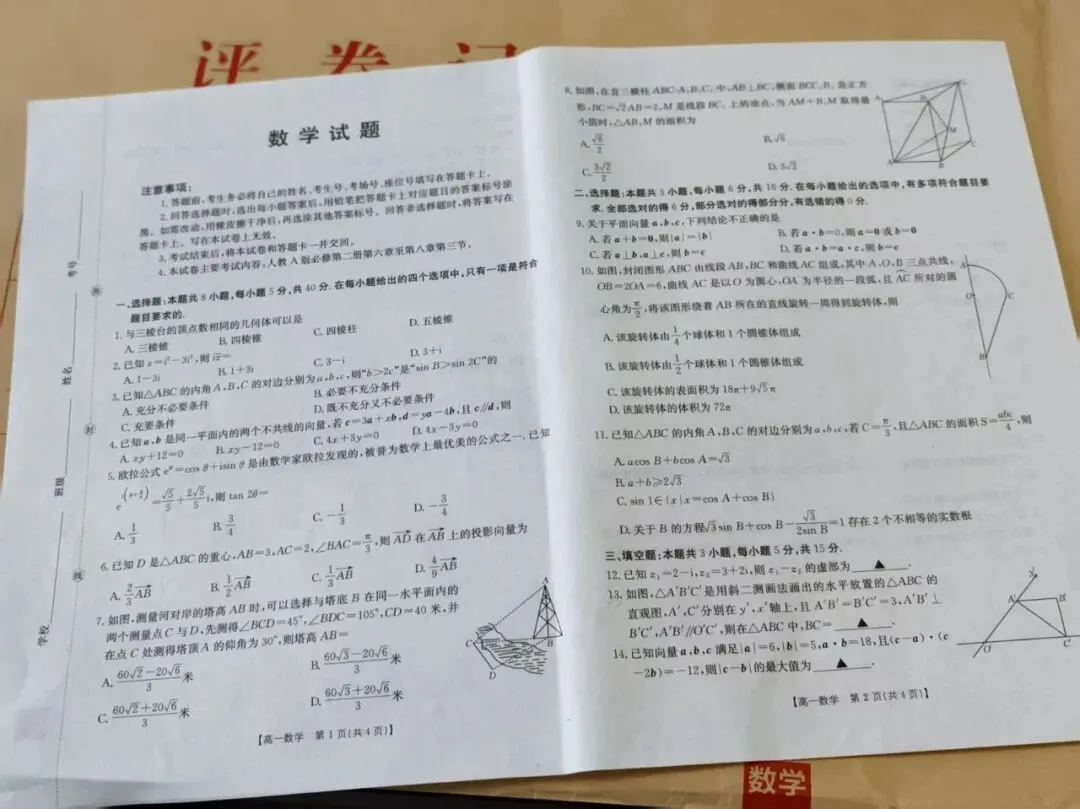 评卷
数学试题
注意事项：
1. 答题前，考生务必将自己的姓名、考生号、考场号、座位号填写在答题卡上。
2. 回答选择题时，选出每小题答案后，用铅笔把答题卡上对应题目的答案标号涂
黑。如需改动，用橡皮擦干净后，再选涂其他答案标号。回答非选择题时，将答案写在
答题卡上。写在本试卷上无效。
3. 考试结束后，将本试卷和答题卡一并交回。
4. 本试卷主要考试内容：人教 A 版必修第二册第六章至第八章第三节。
一、选择题：本题共 8 小题，每小题 5 分，共 40 分. 在每小题给出的四个选项中，只有一项是符合
题目要求的.
1. 与三棱台的顶点数相同的几何体可以是
A. 三棱锥 B. 四棱锥 C. 四棱柱 D. 五棱锥
2. 已知 z=i²-3i³，则 iz̄=
A. 1-3i B. 1+3i C. 3-i D. 3+i
3. 已知△ABC 的内角 A,B,C 的对边分别为 a,b,c，则“b>2c”是“sin B>sin 2C”的
A. 充分不必要条件 B. 必要不充分条件
C. 充要条件 D. 既不充分又不必要条件
4. 已知 a,b 是同一平面内的两个不共线的向量，若 c=3a+xb, d=ya-4b，且 c∥d，则
A. xy+12=0 B. xy-12=0 C. 4x+3y=0 D. 4x-3y=0
5. 欧拉公式 e^{iθ}=cos θ+isin θ 是由数学家欧拉发现的，被誉为数学上最优美的公式之一. 已知
e^{i(θ+π/4)}=√5/5+2√5/5 i，则 tan 2θ=
A. 1/3 B. 3/4 C. -1/3 D. -3/4
6. 已知 D 是△ABC 的重心，AB=3, AC=2, ∠BAC=π/3，则 AD 在 AB 上的投影向量为
A. 2/3 AB B. 1/2 AB C. 1/3 AB D. 4/9 AB
7. 如图，测量河对岸的塔高 AB 时，可以选择与塔底 B 在同一水平面内的
两个测量点 C 与 D，先测得∠BCD=45°, ∠BDC=105°, CD=40 米，并
在点 C 处测得塔顶 A 的仰角为 30°，则塔高 AB=
A. (60√2-20√6)/3 米 B. (60√3-20√6)/3 米
C. (60√2+20√6)/3 米 D. (60√3+20√6)/3 米
A
B
C
D
【高一数学 第 1 页(共 4 页)】
考号
姓名
班级
学校
封
线
8. 如图，在直三棱柱 ABC-A₁B₁C₁ 中，AB⊥BC，侧面 BCC₁B₁ 是正方
形，BC=√2AB=2，M 是线段 BC₁ 上的动点，当 AM+B₁M 取得最
小值时，△AB₁M 的面积为
A. √6/2 B. √6
C. 3√2/2 D. 3√2
M
A
B
C
二、选择题：本题共 3 小题，每小题 6 分，共 18 分. 在每小题给出的选项中，有多项符合题目要
求. 全部选对的得 6 分，部分选对的得部分分，有选错的得 0 分.
9. 关于平面向量 a,b,c，下列结论不正确的是
A. 若 a+b=0，则|a|=|b| B. 若 a·b=0，则 a=0 或 b=0
C. 若 a⊥b, a⊥c，则 b=c D. 若 a·b=a·c，则 b=c
10. 如图，封闭图形 ABC 由线段 AB, BC 和曲线 AC 组成，其中 A,O,B 三点共线，
OB=2OA=6，曲线 AC 是以 O 为圆心，OA 为半径的一段弧，且 AC 所对的圆
心角为 π/2，将该图形绕着 AB 所在的直线旋转一周得到旋转体，则
A. 该旋转体由 1/4 个球体和 1 个圆锥体组成
B. 该旋转体由 1/2 个球体和 1 个圆锥体组成
C. 该旋转体的表面积为 18π+9√5π
D. 该旋转体的体积为 72π
A
O
C
B
11. 已知△ABC 的内角 A,B,C 的对边分别为 a,b,c，若 C=π/3，且△ABC 的面积 S=abc/4，则
A. acos B+bcos A=√3
B. a+b≥2√3
C. sin 1∈{x|x=cos A+cos B}
D. 关于 B 的方程√3sin B+cos B-√3/(2sin B)=1 存在 2 个不相等的实数根
三、填空题：本题共 3 小题，每小题 5 分，共 15 分.
12. 已知 z₁=2-i, z₂=3+2i，则 z₁-z₂ 的虚部为 ▲ .
13. 如图，△A′B′C′ 是用斜二测画法画出的水平放置的△ABC 的
直观图，A′,C′分别在 y′,x′轴上，且 A′B′=B′C′=3, A′B′⊥
B′C′, A′B′∥O′C′，则在△ABC 中，BC= ▲ .
14. 已知向量 a,b,c 满足|a|=6, |b|=5, a·b=18，且(c-a)·(c
-2b)=-12，则|c-b|的最大值为 ▲ .
y′
A′
B′
O′
C′
【高一数学 第 2 页(共 4 页)】
数学